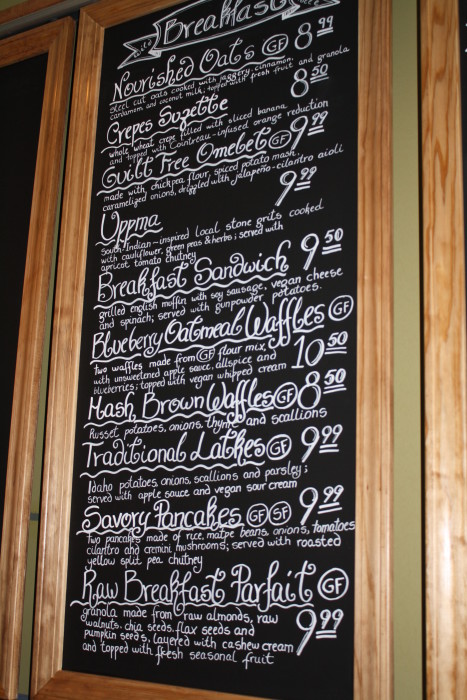 Breakfast
Nourished Oats GF 8 99
steel cut oats cooked with jaggery, cinnamon,
cardamom and coconut milk; topped with fresh fruit and granola
Crepes Suzette 8 50
whole wheat crepe filled with sliced banana
and topped with Cointreau-infused orange reduction
Guilt Free Omelet GF 9 99
made with chickpea flour, spiced potato mash,
caramelized onions, drizzled with jalapeño-cilantro aioli
Uppma 9 99
South-Indian-inspired local stone grits cooked
with cauliflower, green peas & herbs; served with
apricot tomato chutney
Breakfast Sandwich 9 50
grilled english muffin with soy sausage, vegan cheese
and spinach; served with gunpowder potatoes.
Blueberry Oatmeal Waffles GF
two waffles made from GF flour mix, 10 50
with unsweetened apple sauce, allspice and
blueberries; topped with vegan whipped cream
Hash Brown Waffles GF 8 50
Russet potatoes, onions, thyme and scallions
Traditional Latkes GF 9 99
Idaho potatoes, onions, scallions and parsley;
served with apple sauce and vegan sour cream
Savory Pancakes GF SF 9 99
Two pancakes made of rice, matpe beans, onions, tomatoes
cilantro and cremini mushrooms; served with roasted
yellow split pea chutney
Raw Breakfast Parfait GF
granola made from raw almonds, raw 9 99
walnuts, chia seeds, flax seeds and
pumpkin seeds, layered with cashew cream
and topped with fresh seasonal fruit